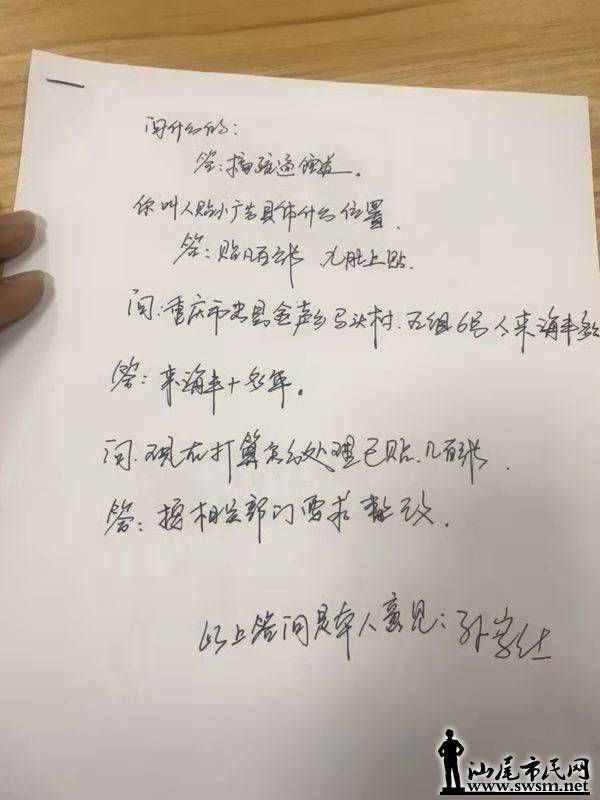 问什么的:
答:搞疏通管道。
你叫人贴小广告具体什么位置.
答:贴几百张 九肚上贴.
问:重庆市忠县金声乡马头村.五组6号人来海丰多
答:来海丰十多年。
问.现在打算怎么处理已贴.几百张.
答:按相关部门要求整改.
以上答问是本人意见:孙
汕尾市民网
www.swsm.net